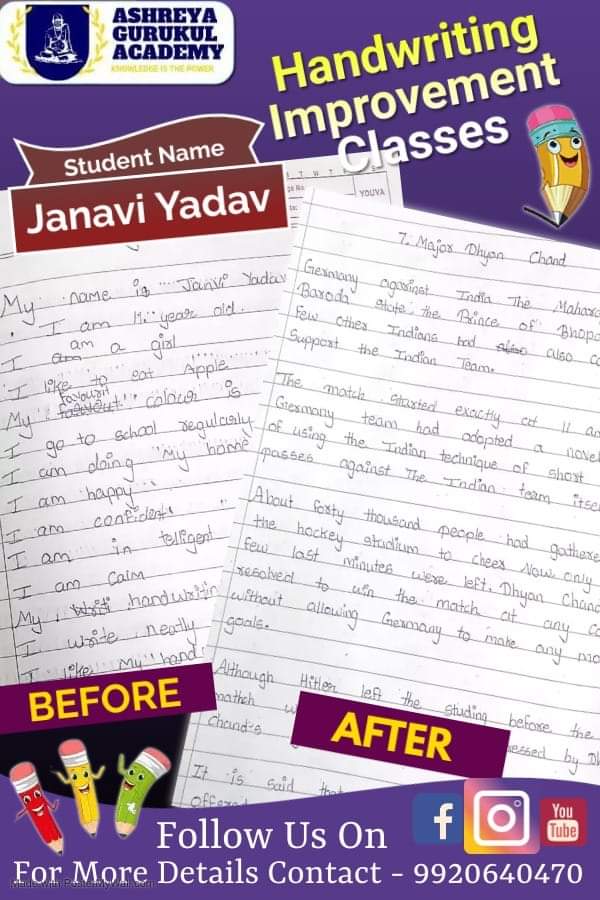 ASHREYA
GURUKUL
ACADEMY
KNOWLEDGE IS THE POWER
Handwriting
Improvement
Classes
Student Name
Janavi Yadav
YOUVA
My name is Janvi Yadav
I am 11 year old.
I am a girl
I like to eat Apple
favourit
My colour is
I go to school regularly
I am doing My home
I am happy
I am confident
I am in telligent
I am Calm
My handwritin
I write neatly
I like My hand
BEFORE
7. Major Dhyan Chand
Germany against India The Mahara
Baroda state the Prince of Bhopa
Few other Indians had also co
Support the Indian Team.
The match started exactly at 11 am
Germany team had adopted a novel
of using the Indian technique of short
passes against The Indian team itse
About forty thousand people had gathere
the hockey stadium to cheer Now only
few last minutes were left. Dhyan Chand
resolved to win the match at any co
without allowing Germany to make any mo
goals.
Although Hitler left the studing before the
match w
essed by Dh
Chand's
It is said that
offered
AFTER
Follow Us On
You
Tube
For More Details Contact - 9920640470
Made with PosterMyWall.com